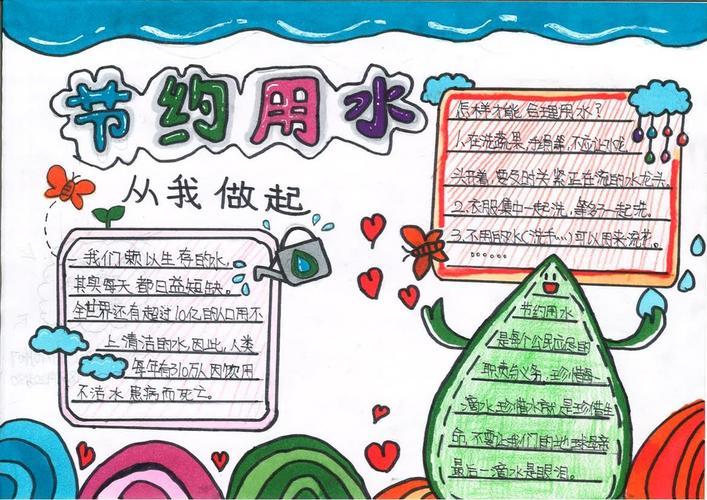 节约用水
从我做起
我们赖以生存的水,
其实每天都日益短缺。
全世界还有超过10亿的人口用不
上清洁的水,因此,人类
每年有310万人因饮用
不洁水患病而死亡。
怎样才能合理用水?
1.在洗蔬果、等,不应让水龙
头开着,要及时关紧正在流的水龙头。
2.衣服集中一起洗,等多了一起洗。
3.不用的水(洗手…)可以用来浇花。
……
节约用水
是每个公民应尽的
职责与义务,珍惜每
一滴水,珍惜水就是珍惜生
命,不要让我们的地球母亲
最后一滴水是眼泪。